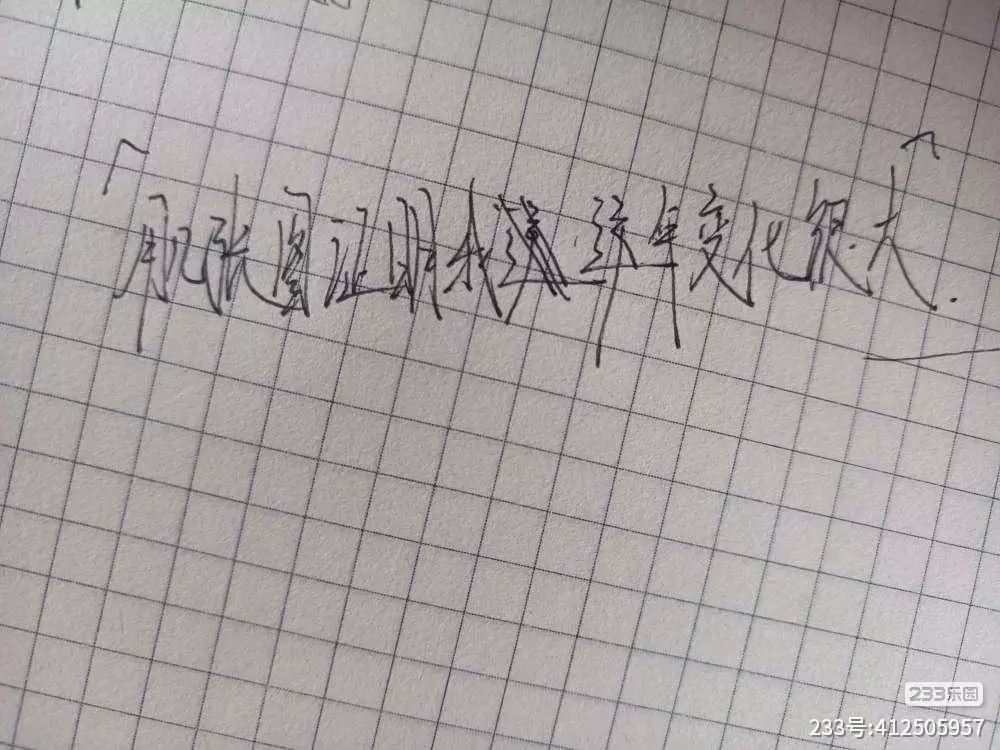 用几张图证明我这年变化很大.
233乐园
233号:412505957